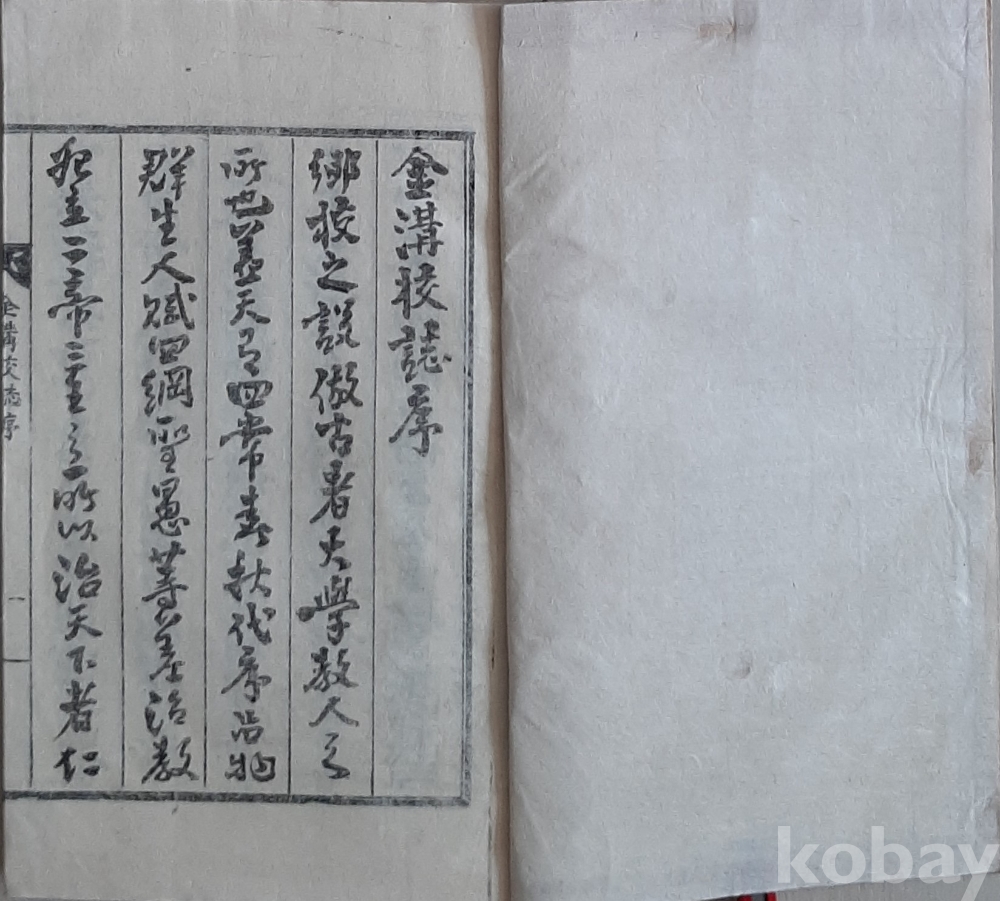 金溝校誌序
鄉校之設倣古者大學敎人之
所也盖天有四常春秋代序品物
群生人賦四綱聖愚等差治敎
二帝三王之所以治天下者仁
金溝校誌序
一
kobay